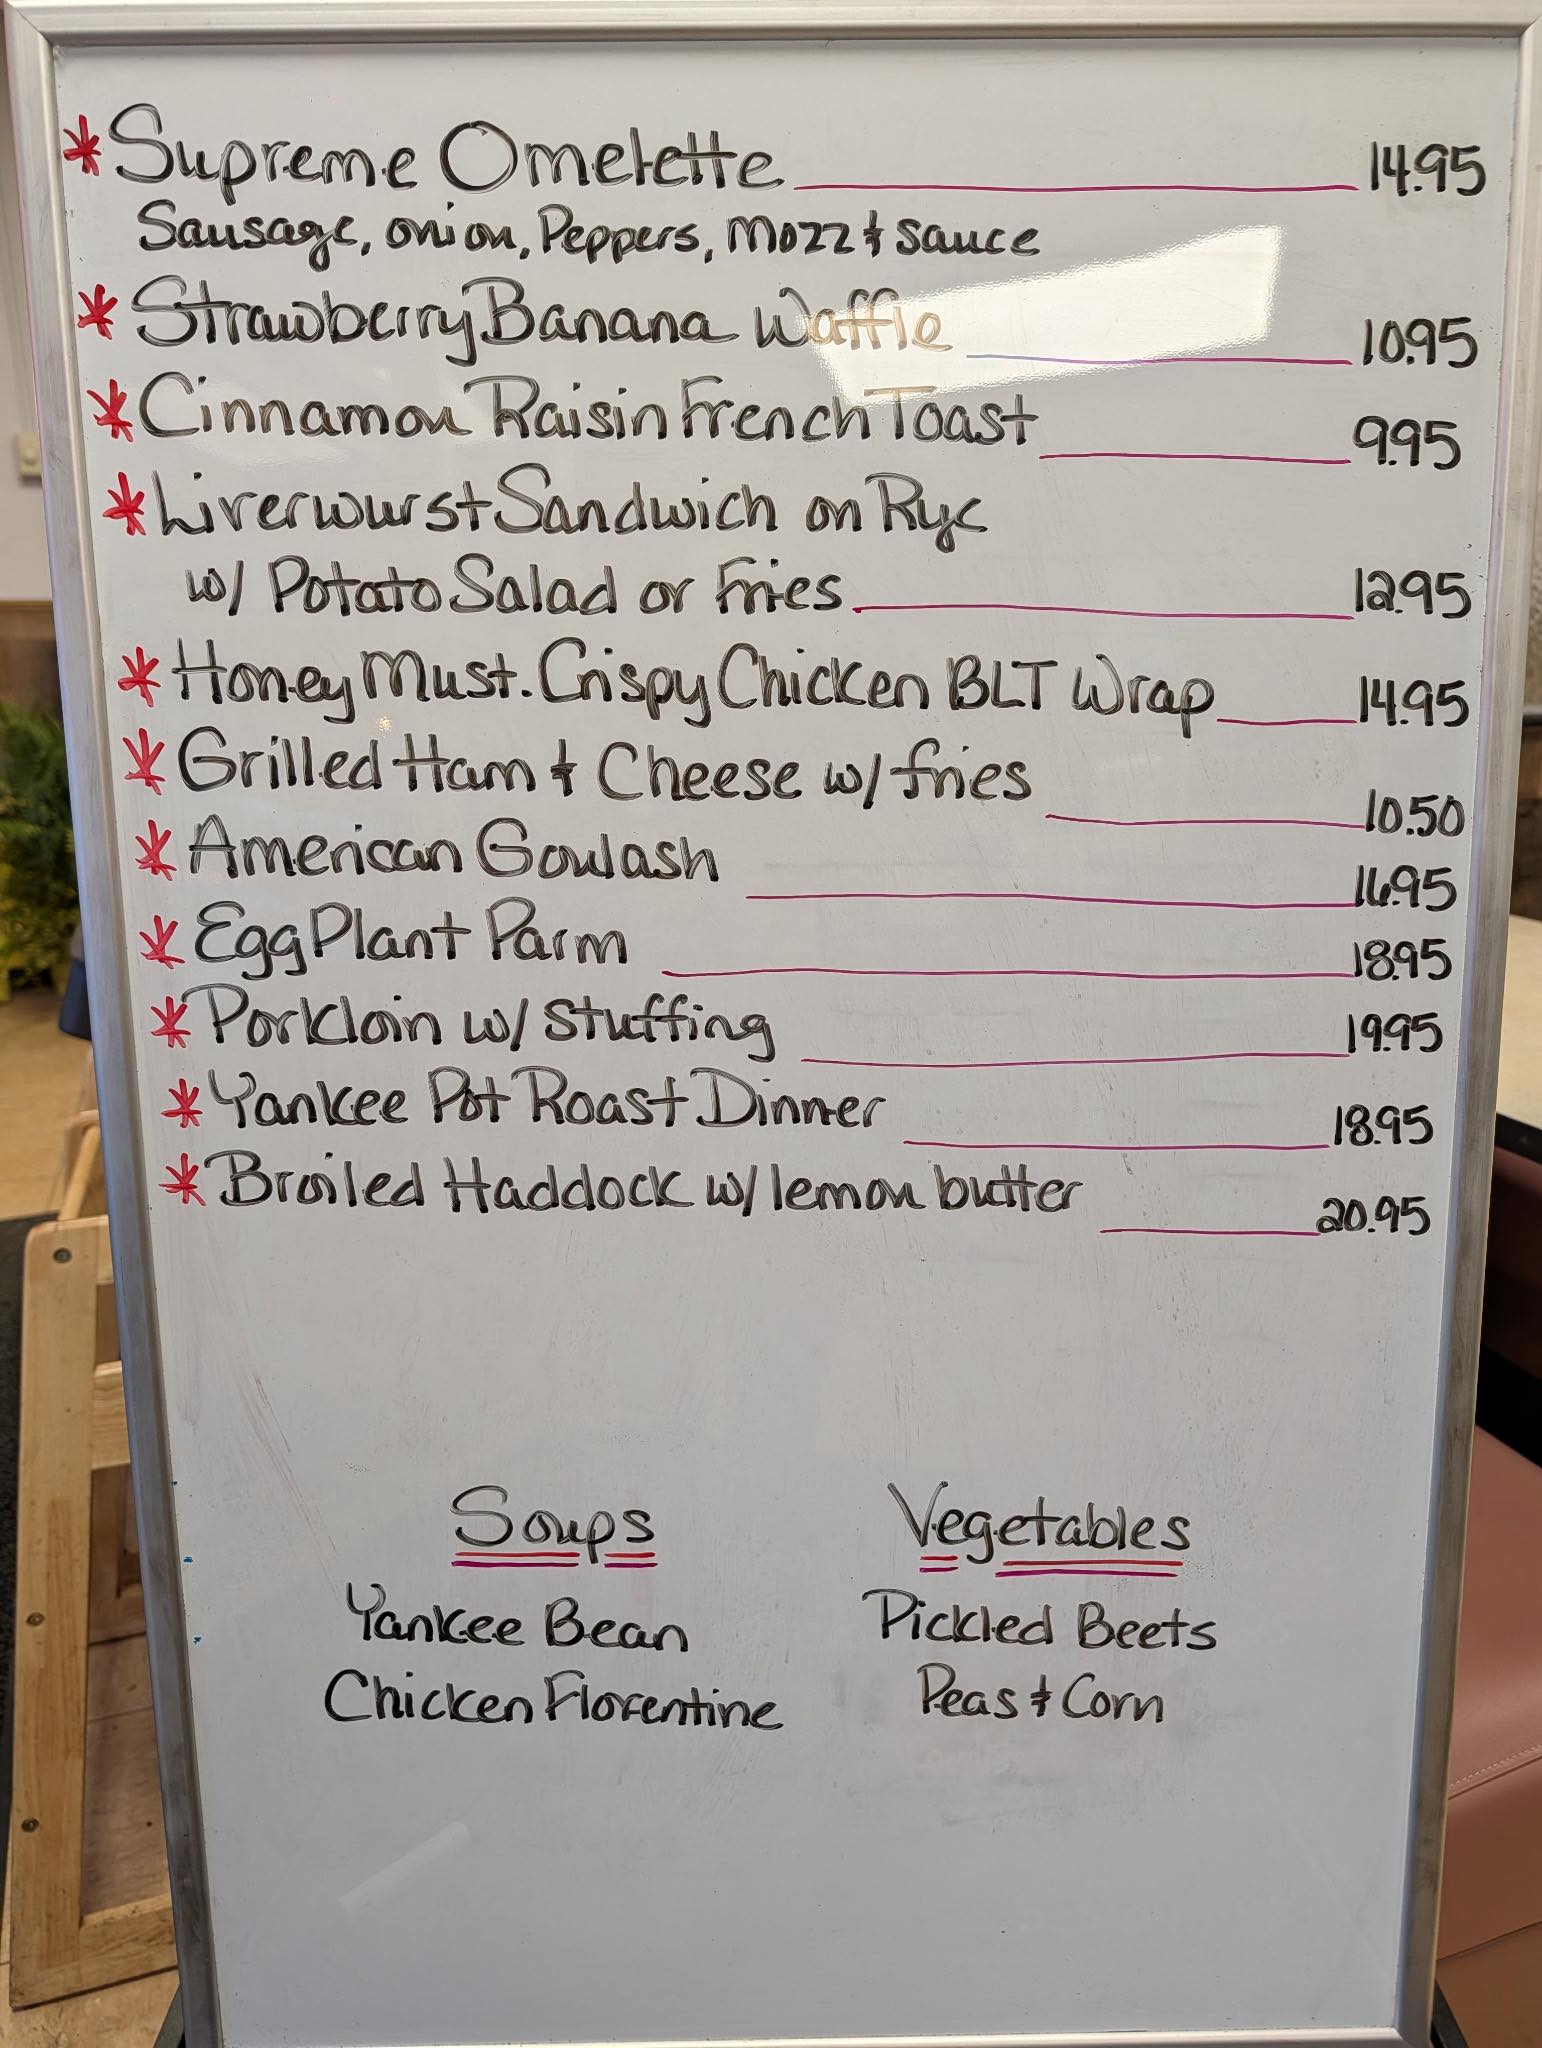 * Supreme Omelette 14.95
Sausage, onion, Peppers, Mozz & sauce
* Strawberry Banana Waffle 10.95
* Cinnamon Raisin French Toast 9.95
* Liverwurst Sandwich on Rye
w/ Potato Salad or Fries 12.95
* Honey Must. Crispy Chicken BLT Wrap 14.95
* Grilled Ham & Cheese w/ fries 10.50
* American Goulash 16.95
* Egg Plant Parm 18.95
* Porkloin w/ Stuffing 19.95
* Yankee Pot Roast Dinner 18.95
* Broiled Haddock w/ lemon butter 20.95
Soups
Yankee Bean
Chicken Florentine
Vegetables
Pickled Beets
Peas & Corn